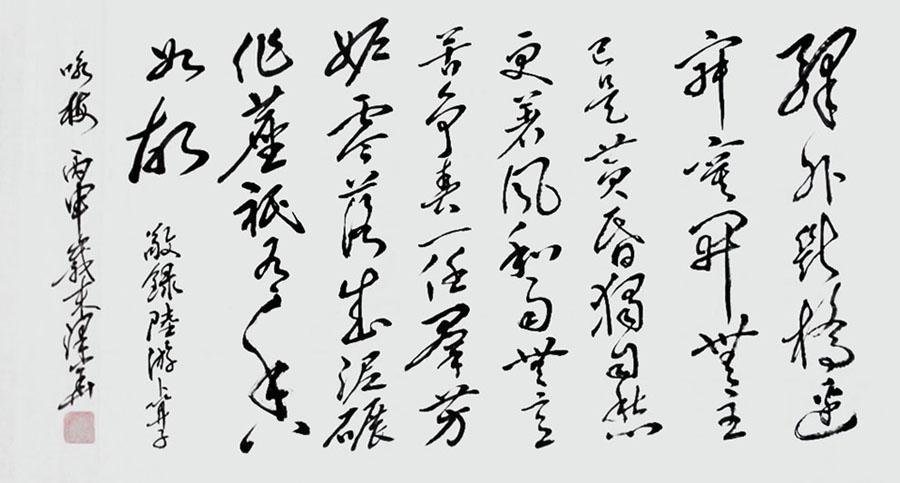 驛外斷橋邊
寂寞開無主
已是黄昏獨自愁
更著風和雨無意
苦爭春一任羣芳
妒零落成泥碾
作塵祇有香
如故
敬錄陸游卜算子
咏梅 丙申歲末